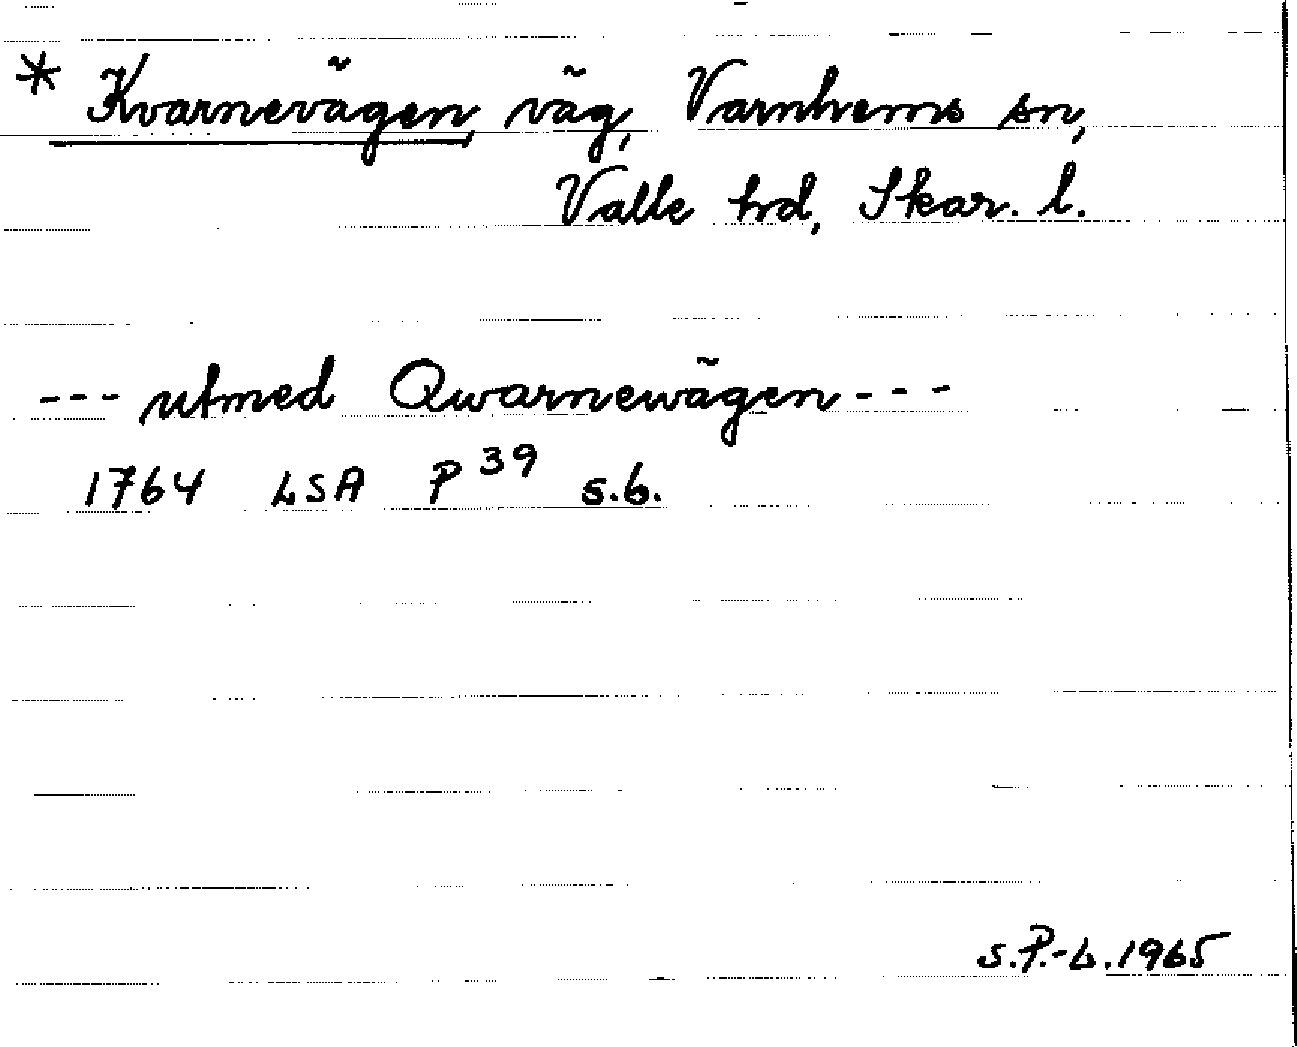 * Kvarnevägen, väg, Varnhems sn,
Valle hd, Skar. l.
--- utmed Qwarnewägen ---
1764 LSA P 39 s.6.
S.P.-L. 1965